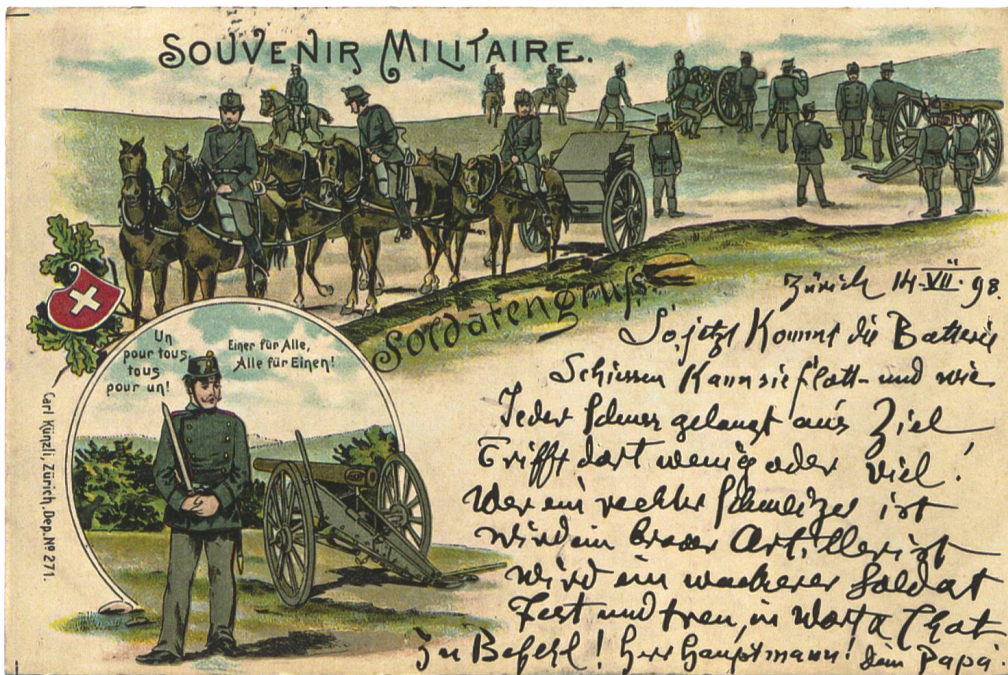 SOUVENIR MILITAIRE.
Soldatengruss.
Un
pour tous,
tous
pour un!
Einer für Alle,
Alle für Einen!
Carl Künzli, Zürich, Dep. Nº 271.
Zürich 14.VII.98
So, jetzt kommt die Batterie
Schiessen kann sie flott - und wie
Jeder Schuss gelangt ans Ziel
Trifft dort wenig oder viel!
Wer ein rechter Schweizer ist
wird ein braver Artillerist
wird ein wackerer Soldat
Fest und treu, in Wort & That
Zu Befehl! Herr Hauptmann! dein Papa.